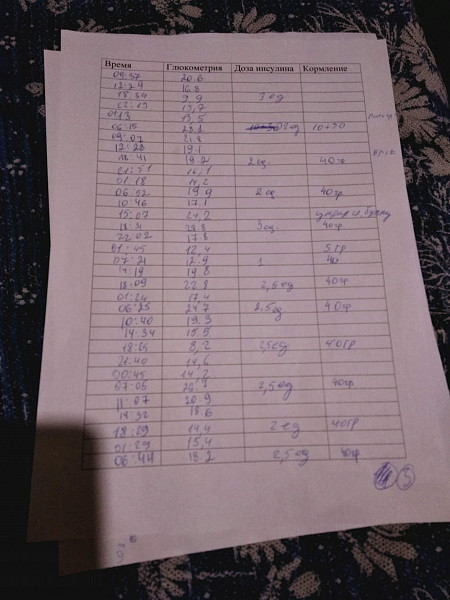 Время Глюкометрия Доза инсулина Кормление
09:37 20.6
12:24 16.8
18:34 9.9 3 ед
22:19 13,7
0113 13,5
06:15 23.1 2 ед 10+30
09:07 21.8
12:28 19.1
18:41 19.2 2 ед. 40гр
21:51 14,1
01:18 14,2
06:52 19,9 2 ед. 40гр
10:46 17.1
15:07 21,2
18:31 23.8 3 ед. 40гр
22:02 17.8
01:45 12,4 5 гр
07:21 12.9 1 40
14:19 19.8
18:09 22.8 2,5 ед 40гр
01:24 17,4
06:25 24.7 2.5 ед 40гр
10:40 19.3
14:34 15.5
18:25 8,2 1,5 ед 40гр
21:40 14,6
00:45 14,2
07:05 2,5 ед 40гр
11:07 20.9
14:32 18.6
18:29 14,4 2 ед 40гр
01:29 15,4
06:44 18.2 2,5 ед 40гр
3